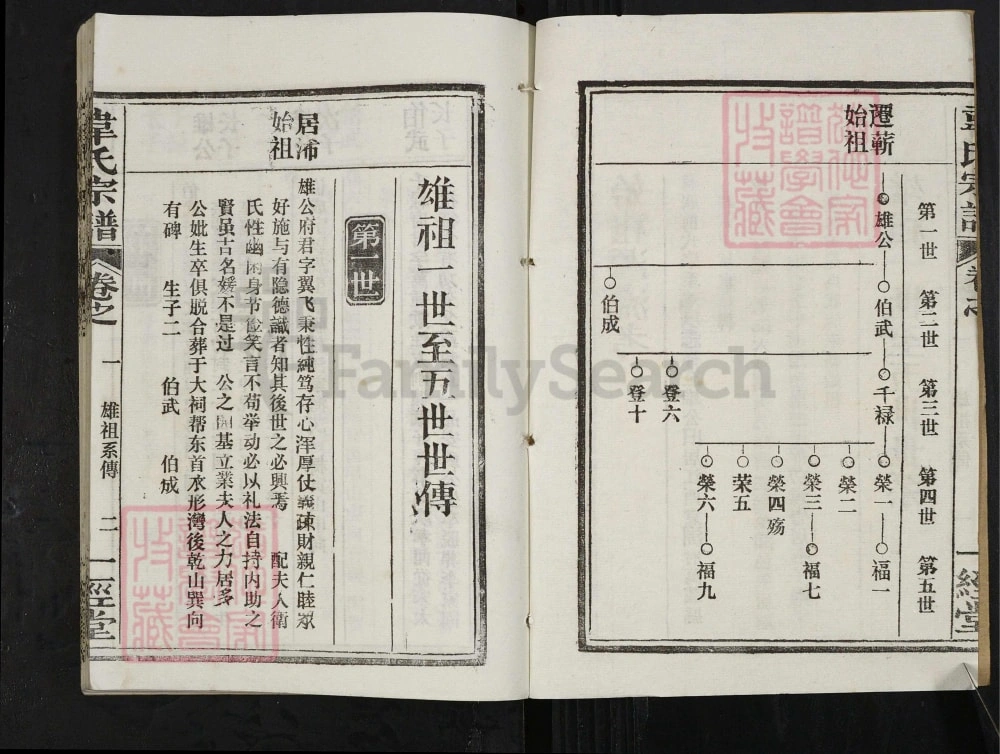 第一世
第二世
第三世
第四世
第五世
遷蘄
始祖
雄公
伯武
千禄
榮一
福一
榮二
榮三
福七
榮四殇
荣五
榮六
福九
登六
登十
伯成
一經堂
雄祖一世至五世世傳
第一世
居沛
始祖
雄公府君字翼飞秉性純笃存心浑厚仗義疎財親仁睦眾
好施与有隐德識者知其後世之必興焉 配夫人衛
氏性幽闲身节俭笑言不苟举动必以礼法自持内助之
賢虽古名媛不是过 公之開基立業夫人之力居多
公妣生卒俱脱合葬于大祠帮东首水形灣後乾山巽向
有碑 生子二 伯武 伯成
韋氏宗譜
卷之
一
雄祖系傳
二
一經堂
FamilySearch